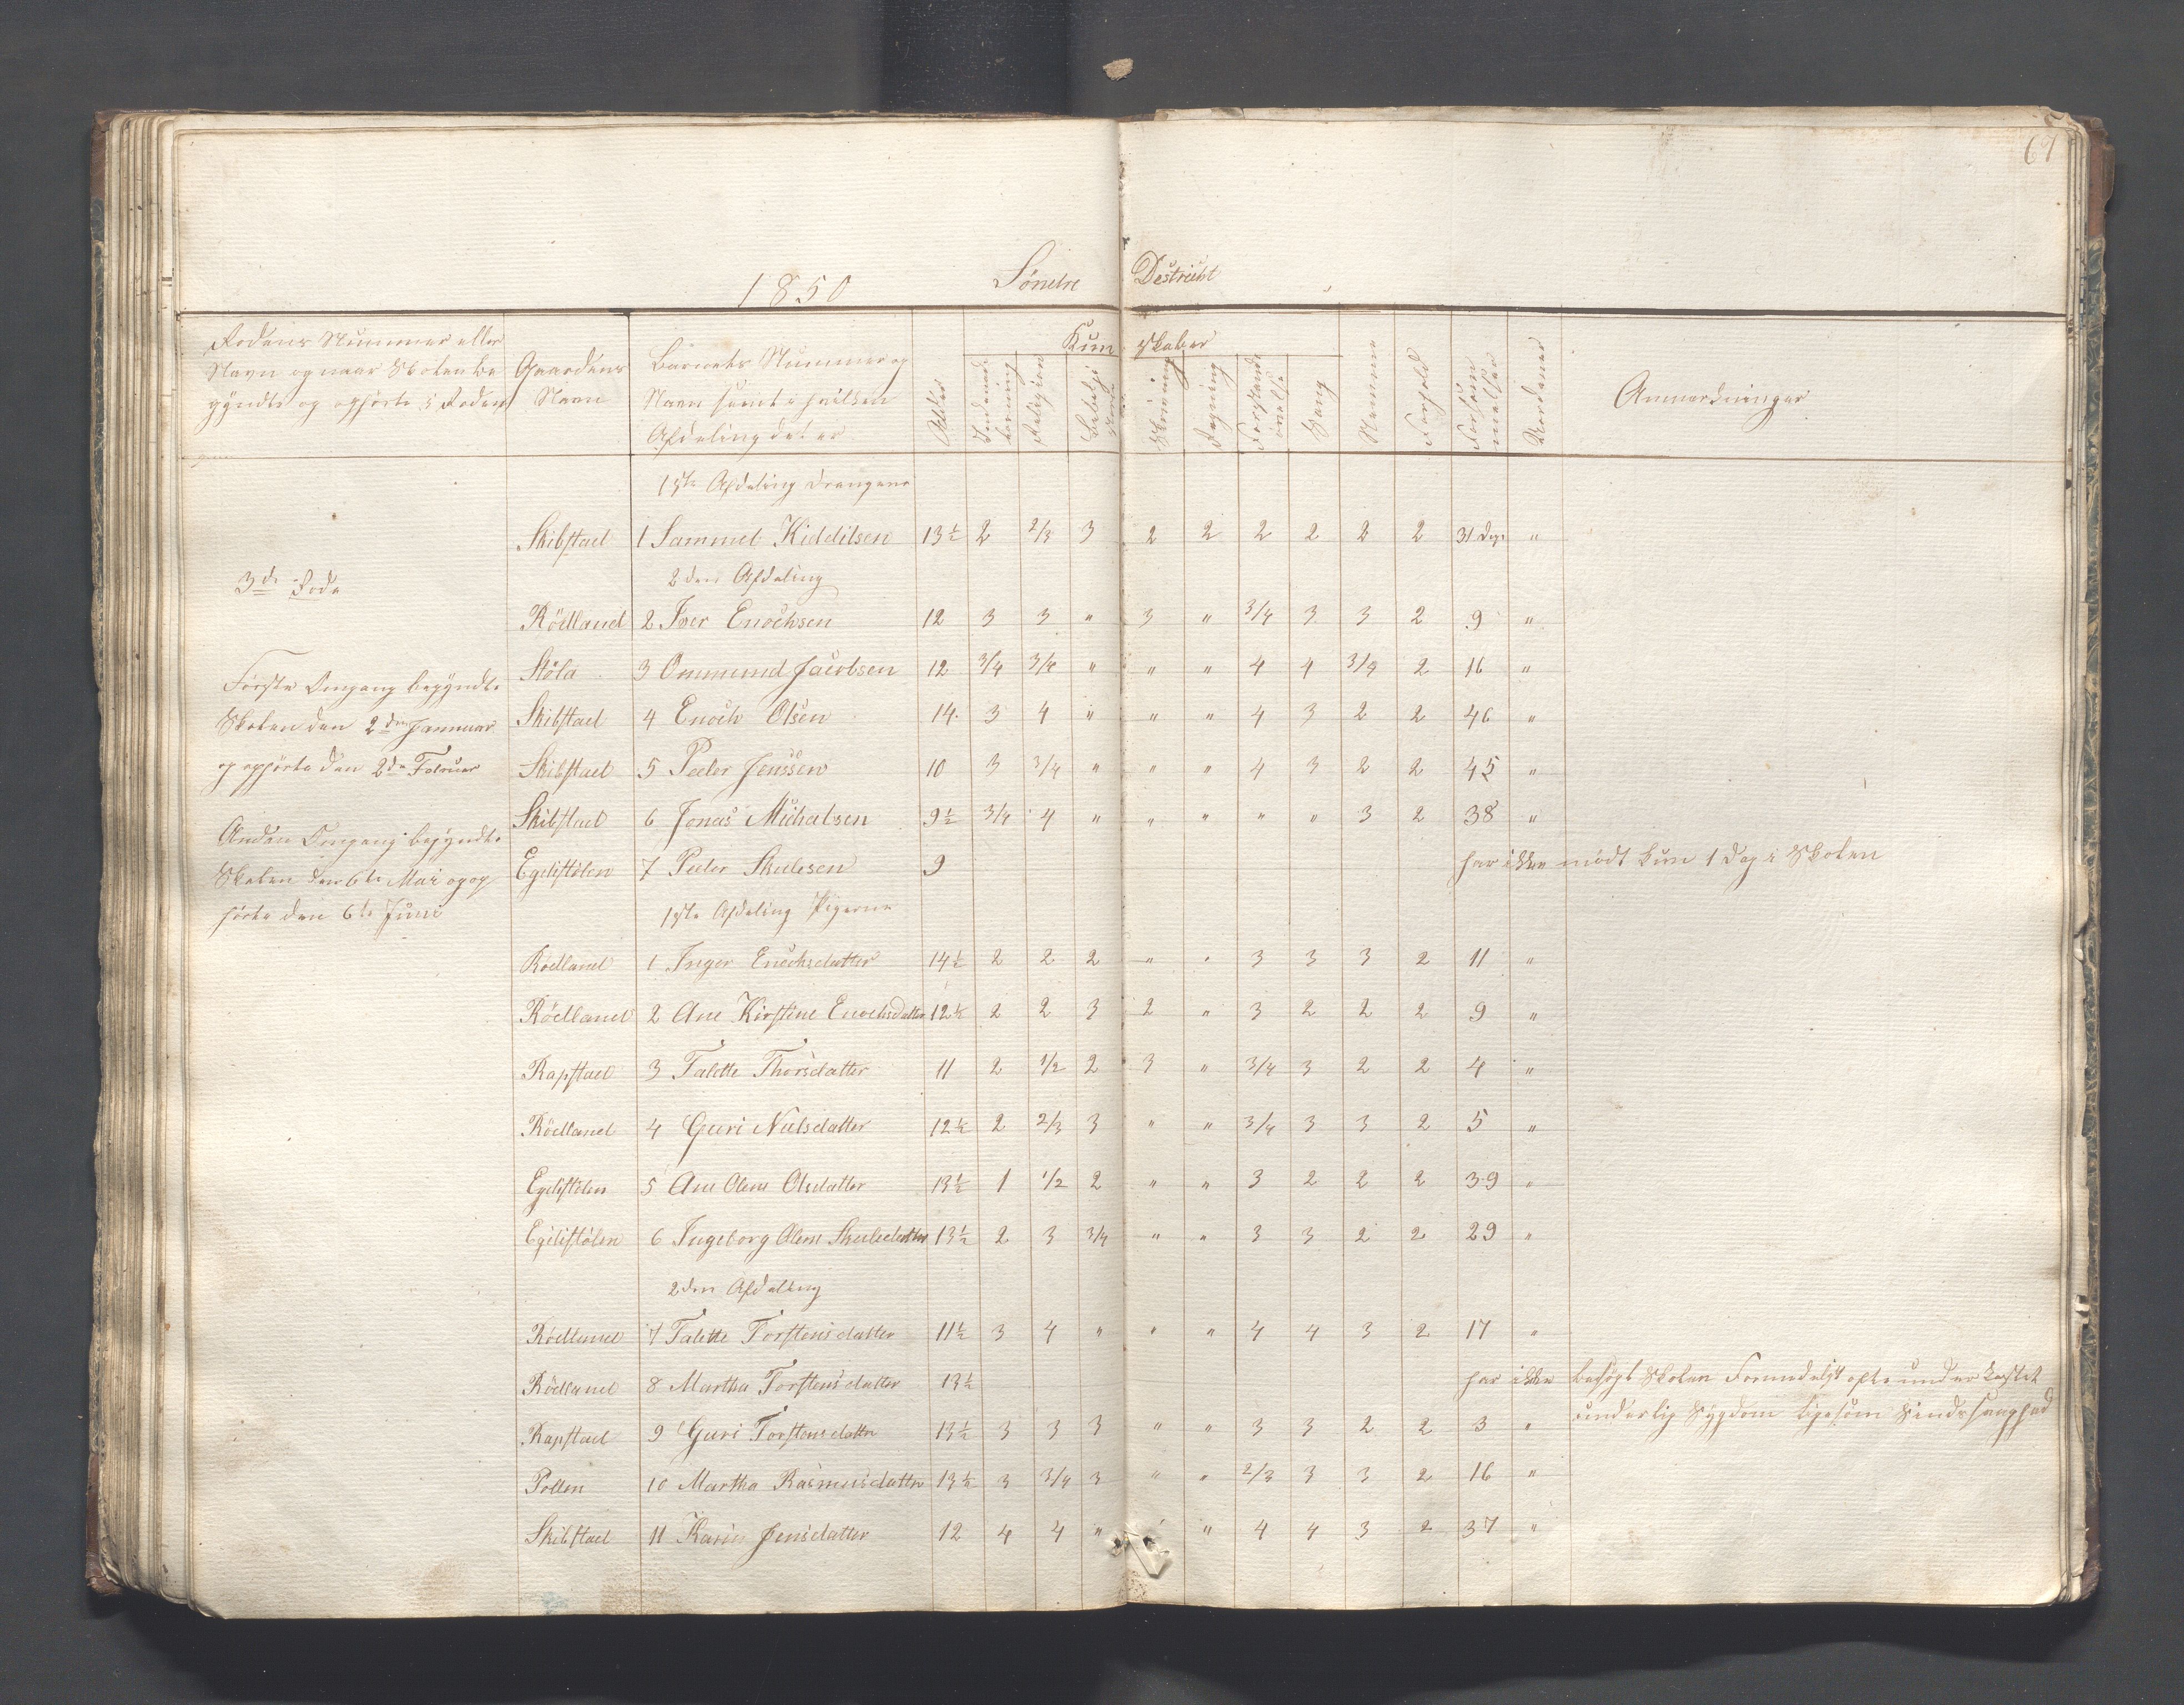 67
1850 Söndre Destricht
Rodens Nummer eller Navn og naar Skolen begyndte og ophörte i Roden
Gaardens Navn
Barnets Nummer og Navn samt i hvilken Afdeling det er
Alder
Kundskaber
Religion
Skrivning
Regning
Sang
Nemme
Forhold
Forsömmelser
Anmærkninger
1ste Afdeling Drengene
Skibstad 1 Sammel Kiddilsen 13½ 2 2/3 3 2 2 2 2 2 2 31 Dage "
3de Rode
2den Afdeling
Rödland 2 Iver Enochsen 12 3 3 " 3 " 3/4 3 3 2 9 "
Störa 3 Ommund Jacobsen 12 3/4 3/4 " " " 4 4 3/4 2 16 "
Første Omgang begyndte
Skolen den 2den Januar
og ophörte den 2de Februar
Skibstad 4 Enoch Olsen 14 3 4 " " " 4 3 2 2 46 "
Skibstad 5 Peder Jenssen 10 3 3/4 " " " 4 3 2 2 45 "
Skibstad 6 Jonas Michalsen 9½ 3/4 4 " " " " " 3 2 38 "
Anden Omgang begyndte
Skolen den 6te Mai og op
hörte den 6te Juni
Egelistölen 7 Peder Skulesen 9 har ikke mödt kun 1 Dag i Skolen
1ste Afdeling Pigerne
Rödland 1 Inger Enochsdatter 14½ 2 2 2 " " 3 3 3 2 11 "
Rödland 2 Ane Kirstine Enochsdatter 12½ 2 2 3 2 " 3 2 2 2 9 "
Rapstad 3 Talette Thorsdatter 11 2 1/2 2 3 " 3/4 3 2 2 4 "
Rödland 4 Guri Nielsdatter 12½ 2 2/3 3 " " 3/4 3 3 2 5 "
Egelistölen 5 Ane Olene Olsdatter 13½ 1 1/2 2 " " 3 2 2 2 39 "
Egelistölen 6 Ingeborg Olene Skulesdatter 13½ 2 3 3/4 " " 3 3 2 2 29 "
2den Afdeling
Rödland 7 Talette Torstensdatter 11½ 3 4 " " " 4 4 3 2 17 "
Rödland 8 Martha Torstensdatter 13½ har ikke besögt Skolen Formedelst ofte underkastet
underlig Sygdom ligesom Sindssvaghed
Rapstad 9 Guri Torstensdatter 13½ 3 3 3 " " 3 3 2 2 3 "
Pollen 10 Martha Rasmusdatter 13½ 3 3/4 3 " " 2/3 3 3 2 16 "
Skibstad 11 Karin Jensdatter 12 4 4 " " " 4 4 3 2 37 "